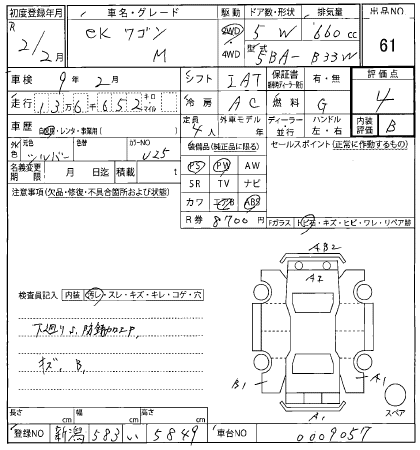 初度登録年月 車名・グレード 駆動 ドア数・形状 排気量 出品NO
R 2/2月 eK ワゴン M 2WD 4WD 5 W 660 cc 61
型式 5BA- B33W
車検 9年 2月 シフト IAT 保証書 有・無 評価点
走行 13万6千652 キロ マイル 冷房 AC 燃料 G 4
車歴 自家用・レンタ・事業用( ) 定員 4人 外車モデル 年 ディーラー 並行 ハンドル 左・右 内装評価 B
外色 元色 シルバー 色替 カラーNO U25 装備品(純正品に限る) セールスポイント(正常に作動するもの)
名義変更期限 月 日迄 積載 t PS PW AW
注意事項(欠品・修復・不具合箇所および状態) SR TV ナビ
カワ エアB ABS
R券 8700円 Fガラス 飛石・キズ・ヒビ・ワレ・リペア跡
AB2
A2
検査員記入 内装 汚れ・スレ・キズ・キレ・コゲ・穴
下廻りS、防錆加工P,
キズ, B,
B1 A1
スペア
A1
長さ cm 幅 cm 高さ cm
登録NO 新潟 583 い 5849 車台NO 0009057